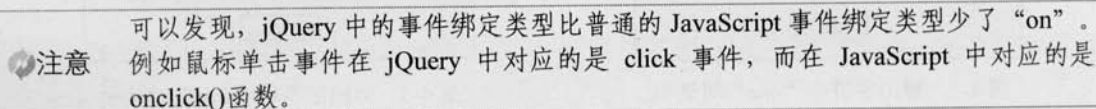 可以发现，jQuery 中的事件绑定类型比普通的 JavaScript 事件绑定类型少了“on”。
注意 例如鼠标单击事件在 jQuery 中对应的是 click 事件，而在 JavaScript 中对应的是
onclick()函数。